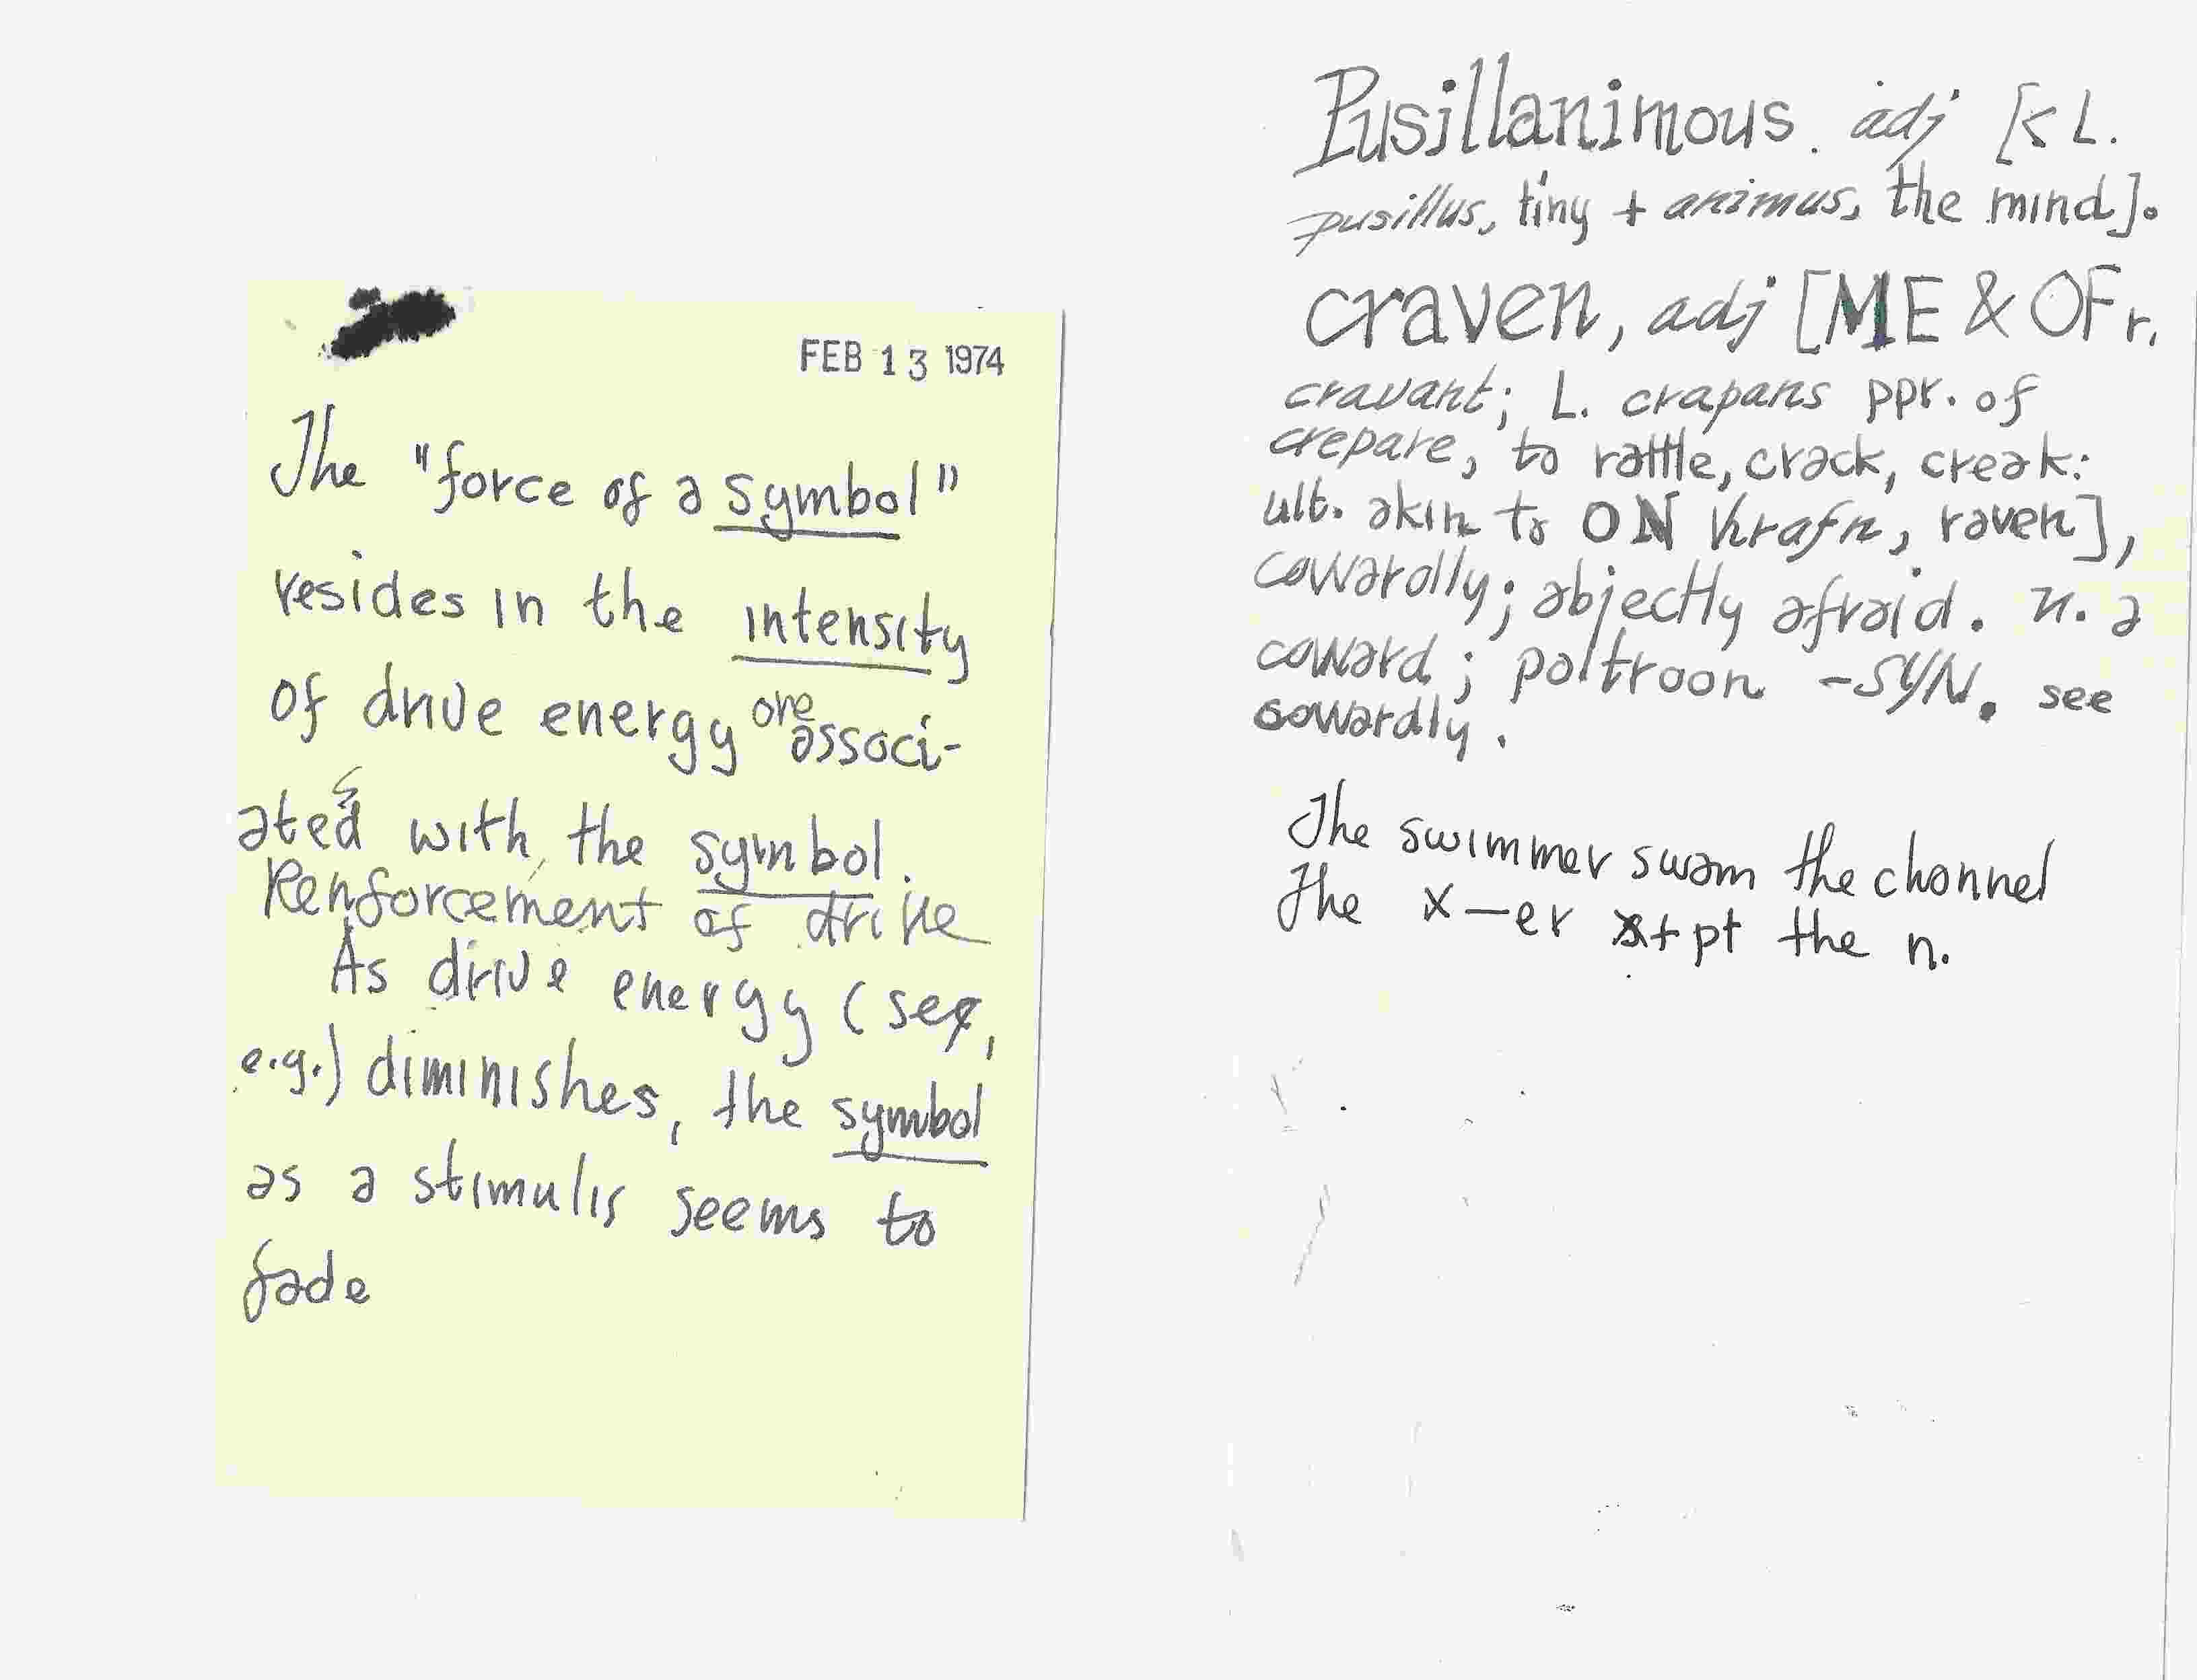 FEB 13 1974
The "force of a symbol"
resides in the intensity
of drive energy one associ-
ates with the symbol.
Renforcement of drive
As drive energy (sex,
e.g.) diminishes, the symbol
as a stimulis seems to
fade
Pusillanimous. adj [< L.
pusillus, tiny + animus, the mind].
craven, adj [ME & OFr.
cravant; L. crapans ppr. of
crepare, to rattle, crack, creak:
ult. akin to ON hrafn, raven],
cowardly; abjectly afraid. n. a
coward; poltroon -SYN. see
cowardly.
The swimmer swam the channel
The x-er x+pt the n.